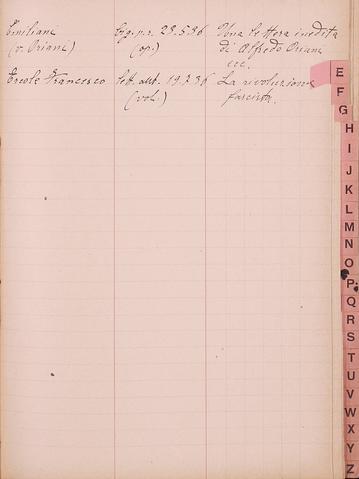 Emiliani
(v. Oriani)
Erg. p.r. 28.5.36
(op.)
Una lettera inedita
di Alfredo Oriani
ecc.
Ercole Francesco
Lett. aut. 19.7.36
(vol.)
La rivoluzione
fascista.
E
F
G
H
I
J
K
L
M
N
O
P
Q
R
S
T
U
V
W
X
Y
Z